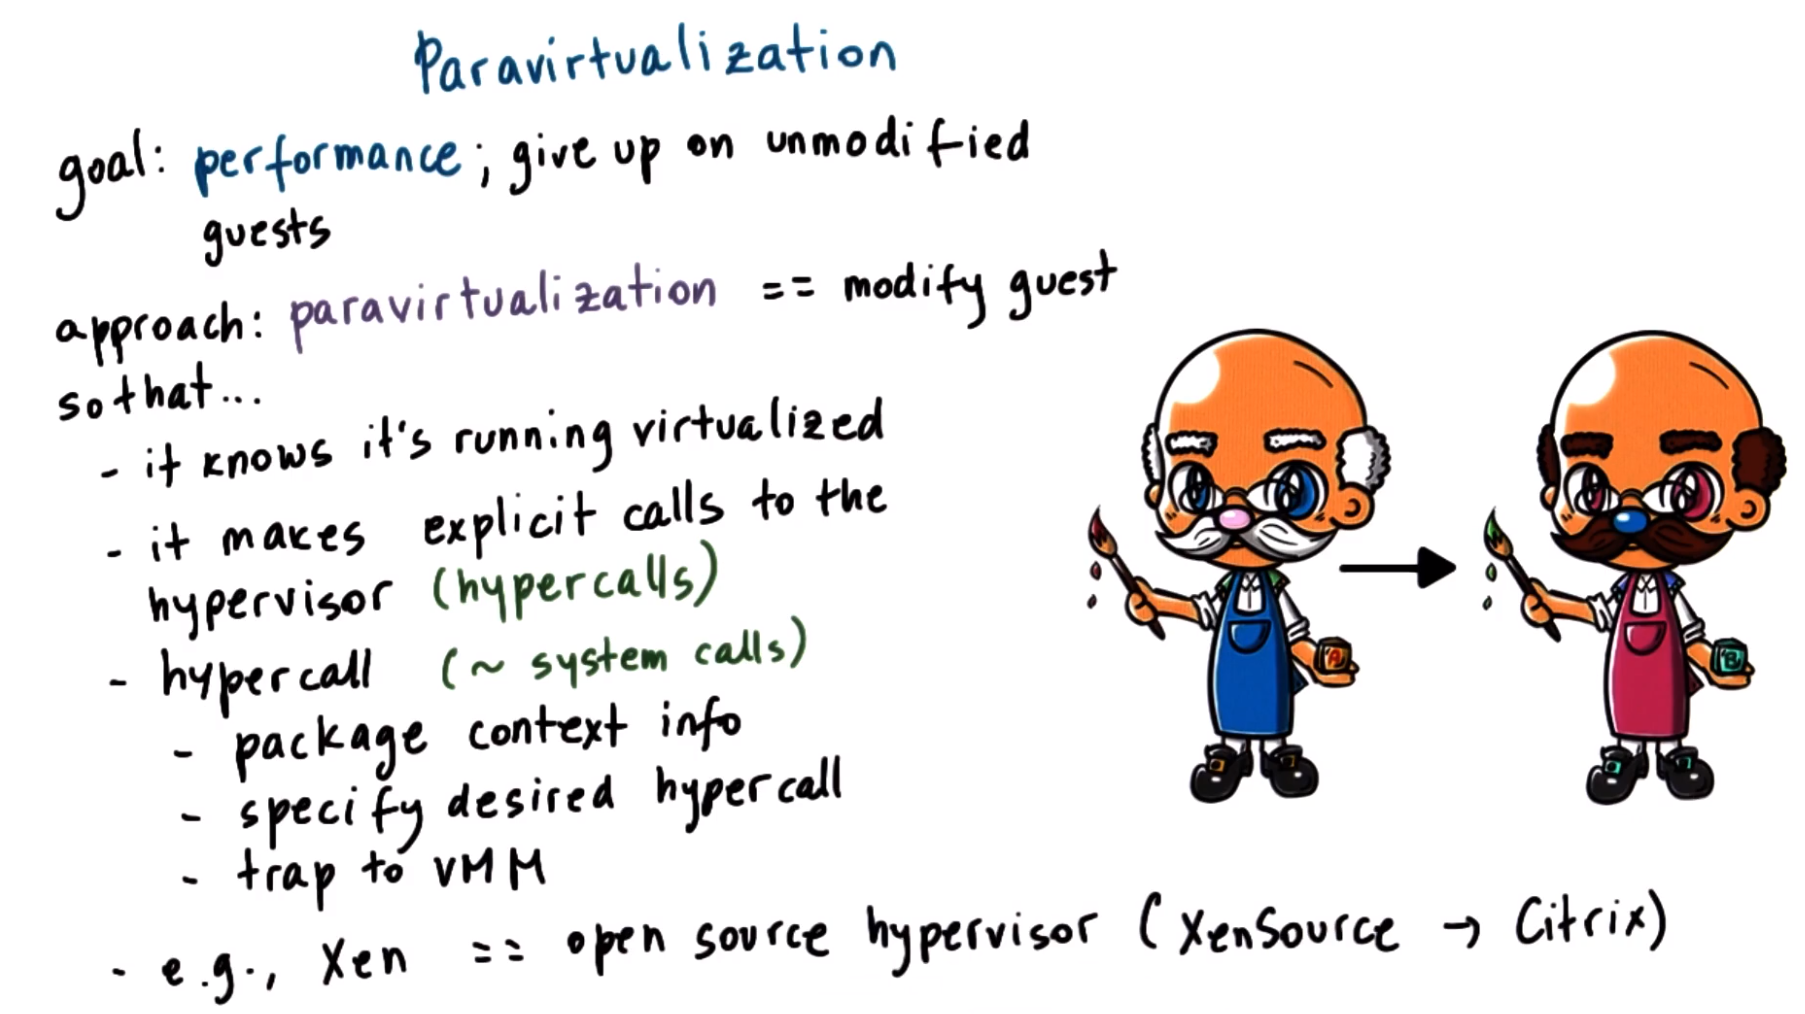 Paravirtualization
goal: performance; give up on unmodified
guests
approach: paravirtualization == modify guest
so that...
- it knows it's running virtualized
- it makes explicit calls to the
hypervisor (hypercalls)
- hypercall (~ system calls)
- package context info
- specify desired hypercall
- trap to VMM
- e.g., Xen == open source hypervisor (XenSource → Citrix)
A
B